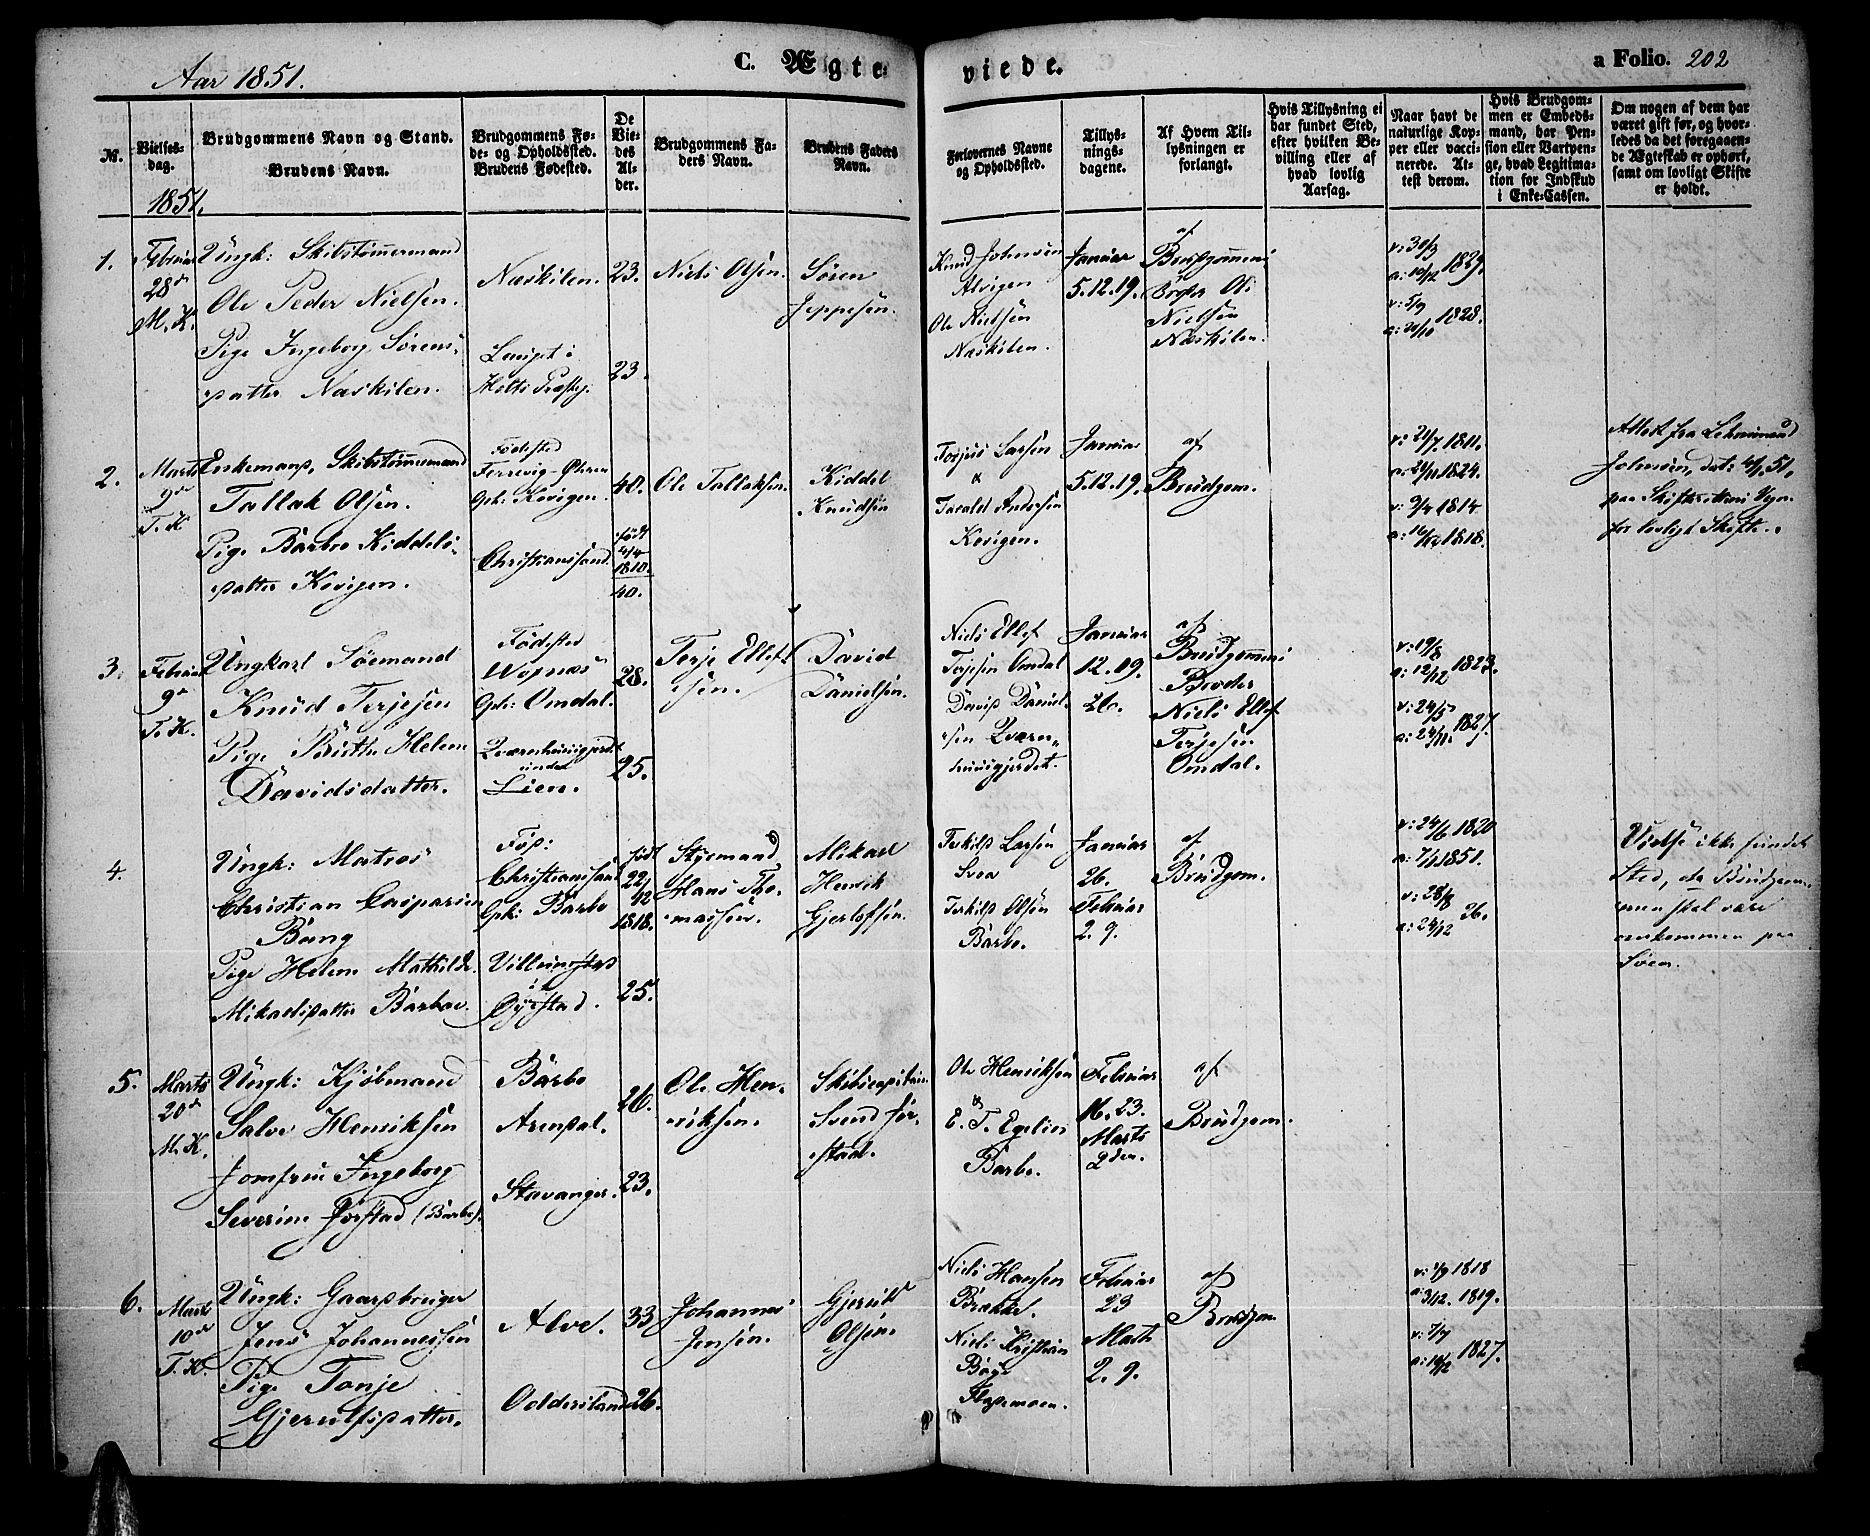 Aar 1851.
C. Ægte-
viede.
a Folio. 202
№.
Vielses-
dag.
Brudgommens Navn og Stand.
Brudens Navn.
Brudgommens Fø-
de- og Opholdssted.
Brudens Fødested.
De
Vie-
des
Al-
der.
Brudgommens Fa-
ders Navn.
Brudens Faders
Navn.
Forlovernes Navne
og Opholdssted.
Tillys-
nings-
dagene.
Af Hvem Til-
lysningen er
forlangt.
Hvis Tillysning ei
har fundet Sted,
efter hvilken Be-
villing eller af
hvad lovlig
Aarsag.
Naar havt de
naturlige Kop-
per eller vacci-
nerede. At-
test derom.
Hvis Brudgom-
men er Embeds-
mand, har Pen-
sion eller Vartpen-
ge, hvad Legitima-
tion for Indskud
i Enke-Cassen.
Om nogen af dem har
været gift før, og hvor-
ledes da det foregaaen-
de Ægteskab er ophørt,
samt om lovligt Skifte
er holdt.
1851.
1.
Februar
28de
M. K.
Ungk: Skibstømmermand
Ole Peder Nielsen.
Pige Ingeborg Sørens-
datter Naskilen.
Naskilen.
23.
23.
Niels Olsen.
Søren
Jeppesen.
Knud Johnsen
Alvigen
Ole Nielsen
Naskilen.
Januar
5. 12. 19.
af
Brudgommens
Ole
Nielsen
Naskilen.
v: 30/3
a: 10/12 1829.
v: 5/9
a: 20/10 1828.
2.
Marts
9de
T. K.
Enkemand, Skibstømmermand
Tallak Olsen.
Pige Barbro Kiddels-
datter Kovigen.
Fødested
Terrevig
Oph: Kovigen.
Christianssand.
40.
født
4/4
1810.
40.
Ole Tallaksen.
Kiddel
Knudsen
Torjus Larsen
&
Tarald Andersen
Kovigen.
Januar
5. 12. 19.
af
Brudgom.
v: 21/7 1811.
a: 21/11 1824.
v: 9/4 1814
a: 16/12 1818.
Attest fra Lehnsmand
Johnsen, dat: 4/1 51,
paa Skifterettens Vegne
for lovligt Skifte.
3.
Februar
9de
T. K.
Ungkarl Søemand
Knud Terjesen
Pige Birthe Helene
Davidsdatter.
Fødested
Vognæs
Oph: Omdal.
Qværnhuusgjerdet
under
Lien.
28.
25.
Terje Ellef-
sen.
David
Danielsen.
Niels Ellef
Terjesen Omdal
David Daniel-
sen Qværn-
huusgjerdet.
Januar
12. 19.
26.
af
Brudgommens
Broder
Niels Ellef
Terjesen
Omdal.
v: 19/8
a: 12/12 1823.
v: 24/5
a: 24/11 1827.
4.
Ungk: Matros
Christian Casparius
Bang
Pige Helene Mathilde
Mikaelsdatter Barboe.
Fød:
Christianssand
Oph: Barbo
i
Øyestad.
født
22/12
1818.
25.
Styrmand
Hans Tho-
massen.
Mikael
Henrik
Gjerlofsen.
Terkild Larsen
Terkild Olsen
Barbo.
Januar
26.
Februar
2. 9.
af
Brudgom.
v: 24/6 1820
a: 7/1 1851.
v: 28/8
a: 24/12 26.
Vielse ikke fundet
Sted, da Brudgom-
men skal være
omkommen paa
Søen.
5.
Marts
20de
M. K.
Ungk: Kjøbmand
Salve Henriksen
Jomfrue Ingeborg
Severine Førstad (Barbo).
Barbo
Arendal.
Stavanger.
26.
23.
Ole Hen-
riksen.
Skibscapitain
Svend Før-
stad.
Ole Henriksen
&
E. T. Egelien
Barbo.
Februar
16. 23.
Marts
2den.
af
Brudgom.
6.
Marts
10de
T. K.
Ungk: Gaardbruger
Jens Johannessen
Pige Tonje
Gjerulfsdatter.
Alve.
Oddersland
33
26.
Johannes
Jensen.
Gjerulf
Olsen.
Niels Hansen
Brække.
Niels Kristian
Bøge
Flademoen.
Februar
23
Marts
2. 9.
af
Brudgom
v: 1/9 1818
a: 3/12. 1819.
v: 7/7
a: 10/2 1827.